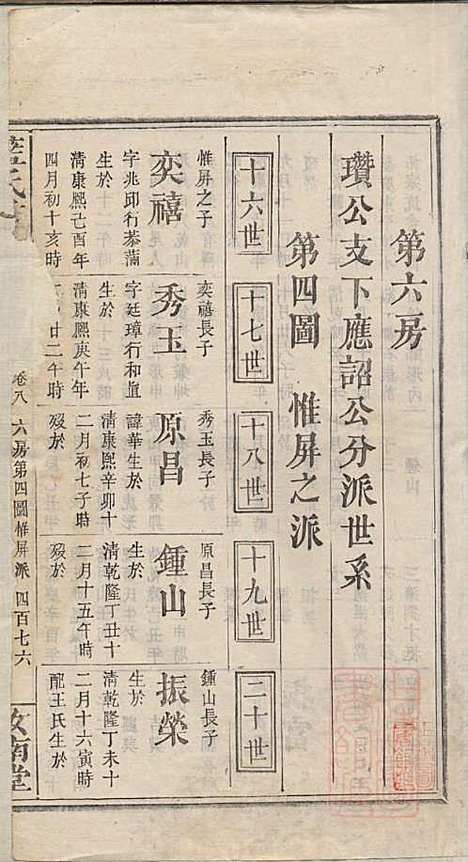 第六房
瓚公支下應詔公分派世系
第四圖　惟屏之派
十六世　十七世　十八世　十九世　二十世
惟屏之子
奕禧
字兆卽行恭蒲
生於
清康熙己酉年
四月初十亥時
奕禧長子
秀玉
字廷璋行和眞
生於
清康熙庚午年
廿二午時
秀玉長子
原昌
諱華生於
清康熙辛卯十
二月初七子時
歿於
原昌長子
鍾山
生於
清乾隆丁丑十
二月十五午時
歿於
鍾山長子
振榮
生於
清乾隆丁未十
二月十六寅時
配王氏生於
卷八　六房第四圖惟屏派　四百七六
汝南堂